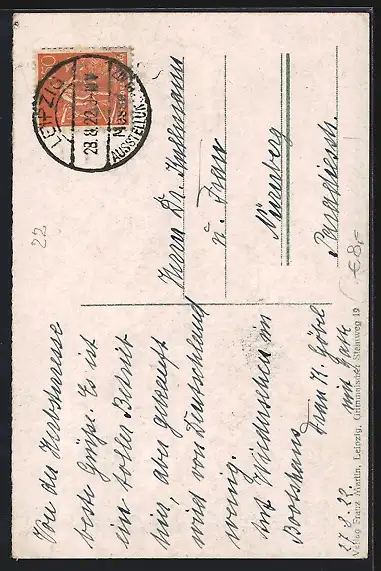 LEIPZIG
28.8.22
MESSE
AUSSTELLUN
Herrn Dr.
u. Frau
Nürnberg
Paradiesstr.
Von der Herbstmesse
beste Grüße. Es ist
ein toller Betrieb
hier, aber gekauft
wird von Deutschland
wenig.
Auf Wiedersehen im
Bootshaus
Frau K. Göbel
mit Gatte
27.8.22.
22
€ 8,-
Verlag Franz Martin, Leipzig, Grimmaischer Steinweg 19